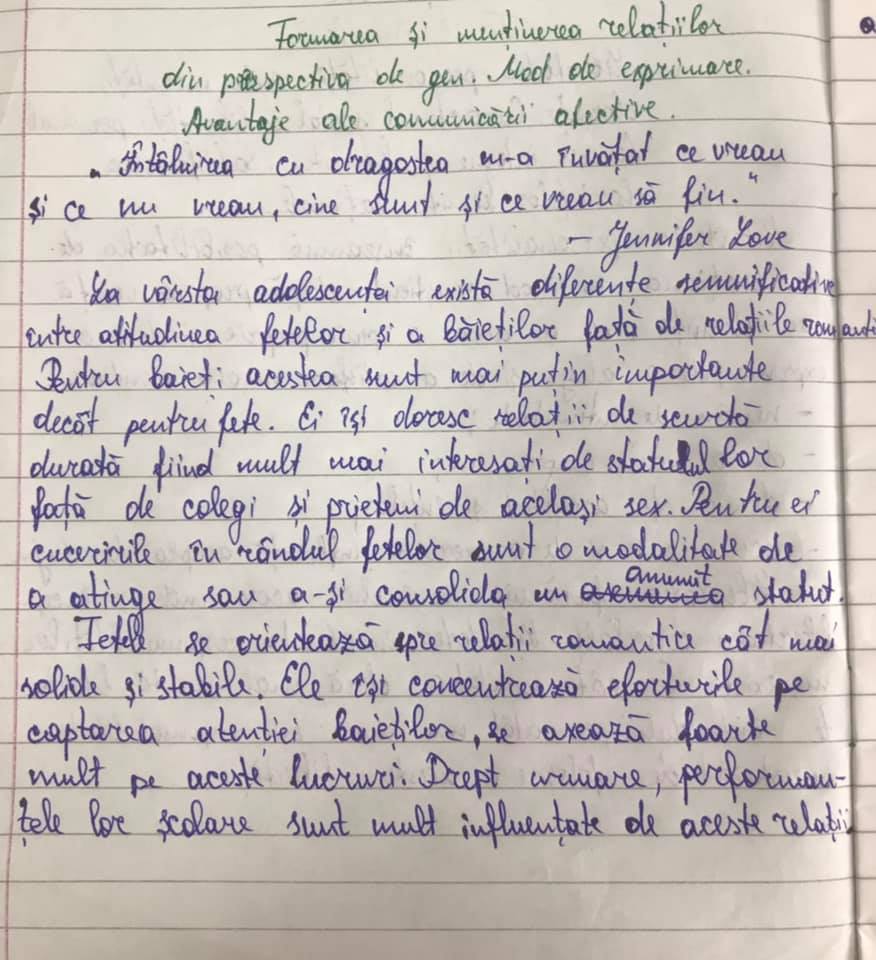 Formarea și menținerea relațiilor
din perspectiva de gen. Mod de exprimare.
Avantaje ale comunicării afective.
„Întâlnirea cu dragostea m-a învățat ce vreau
și ce nu vreau, cine sunt și ce vreau să fiu."
– Jennifer Love
La vârsta adolescenței există diferențe semnificative
între atitudinea fetelor și a băieților față de relațiile romanti
Pentru baieți acestea sunt mai puțin importante
decât pentru fete. Ei își doresc relații de scurtă
durată fiind mult mai interesați de statutul lor
față de colegi și prieteni de același sex. Pentru ei
cuceririle în rândul fetelor sunt o modalitate de
a atinge sau a-și consolida un anumit statut.
Fetele se orientează spre relații romantice cât mai
solide și stabile. Ele își concentrează eforturile pe
captarea atenției baieților, se axează foarte
mult pe aceste lucruri. Drept urmare, performan-
țele lor școlare sunt mult influențate de aceste relații